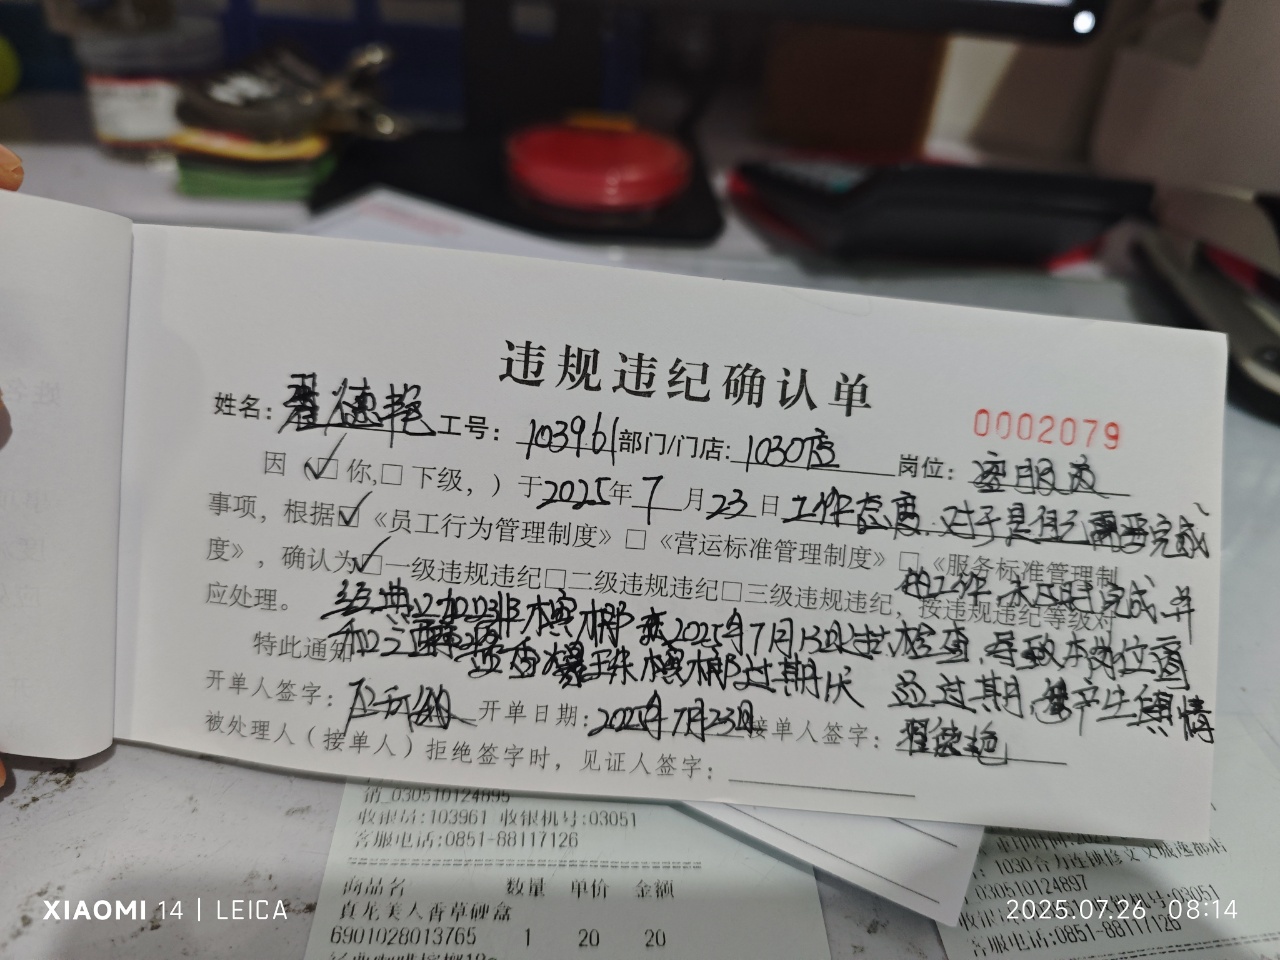 违规违纪确认单
0002079
姓名: 翟德艳 工号: 103961 部门/门店: 1030店 岗位: 客服员
因（☑你,□下级，）于2025年7月23日工作态度.对于是自己需要完成
的工作.未及时完成.并
事项，根据☑《员工行为管理制度》□《营运标准管理制度》□《服务标准管理制
度》，确认为☑一级违规违纪□二级违规违纪□三级违规违纪，按违规违纪等级对
应处理。
经典 咖啡槟榔 2025年7月13日 检查.导致本岗位
特此通知
和 槟榔过期 天 过期.产生舆情
开单人签字: 开单日期: 2025年7月23日 接单人签字: 翟德艳
被处理人（接单人）拒绝签字时，见证人签字:
销_030510124895
收银员:103961 收银机号:03051
客服电话:0851-88117126
商品名 数量 单价 金额
真龙美人香草硬盒
6901028013765 1 20 20
030510124897
机号:03051
客服电话:0851-88117126
XIAOMI 14 | LEICA
2025.07.26 08:14